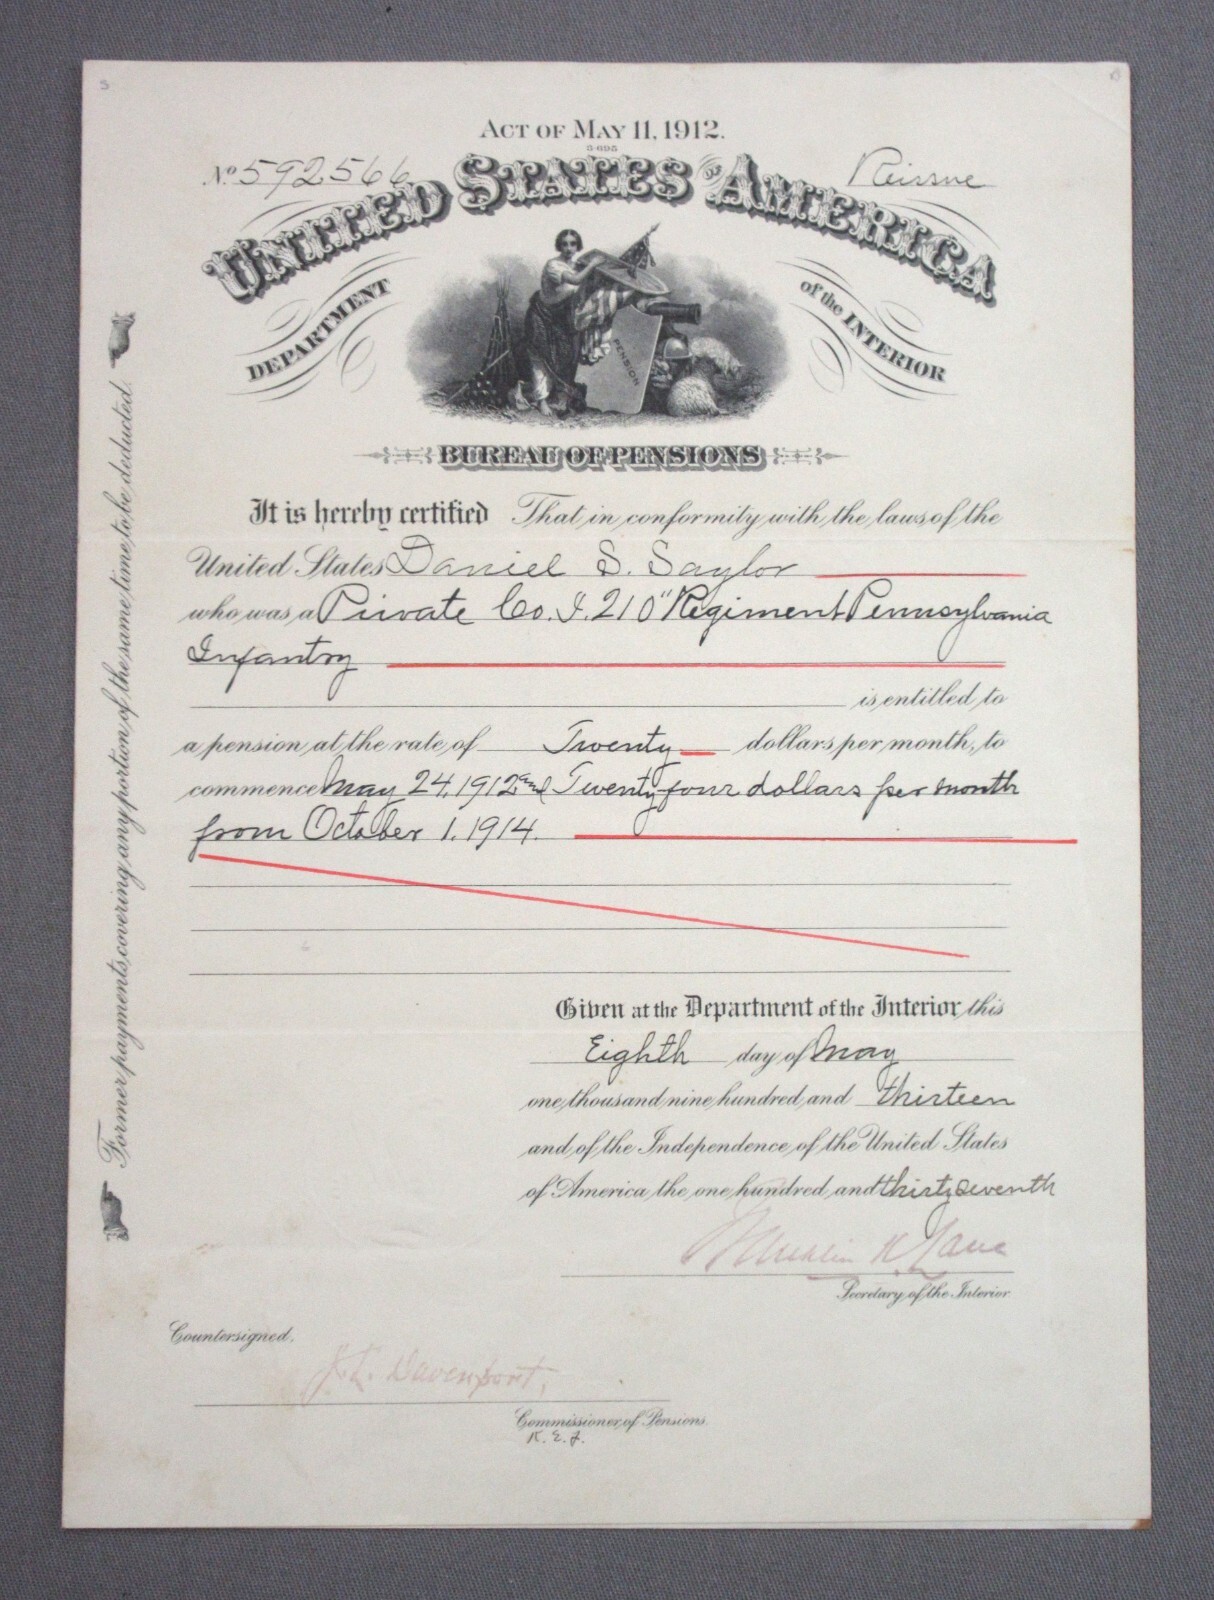 ACT OF MAY 11, 1912.
3-695
No 592,566
Reissue
UNITED STATES OF AMERICA
DEPARTMENT of the INTERIOR
PENSION
BUREAU OF PENSIONS
It is hereby certified That in conformity with the laws of the
United States Daniel S. Saylor
who was a Private Co. I. 210" Regiment Pennsylvania
Infantry
is entitled to
a pension at the rate of Twenty dollars per month, to
commence May 24, 1912 and Twenty four dollars per month
from October 1, 1914.
Given at the Department of the Interior this
Eighth day of May
one thousand nine hundred and thirteen
and of the Independence of the United States
of America the one hundred and thirty seventh
Franklin K Lane
Secretary of the Interior
Countersigned.
J. L. Davenport,
Commissioner of Pensions.
K. E. J.
Former payments covering any portion of the same time to be deducted.